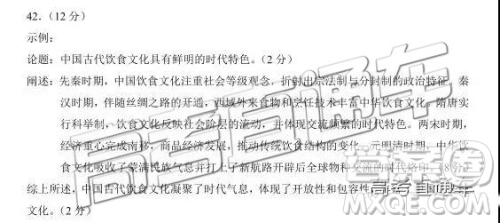 42.（12 分）
示例：
论题：中国古代饮食文化具有鲜明的时代特色。（2 分）
阐述：先秦时期，中国饮食文化注重社会等级观念，折射出宗法制与分封制的政治特征。秦
汉时期，伴随丝绸之路的开通，西域外来食物和烹饪技术丰富中华饮食文化。隋唐实
行科举制，饮食文化反映社会阶层的流动，并体现交流频繁的时代特色。两宋时期，
经济重心完成南移，商品经济发展，推动传统饮食结构的变化。元明清时期，中华饮
食文化吸收了蒙满民族气息并打上了新航路开辟后全球物种交流的时代烙印。（8 分）
综上所述，中国古代饮食文化凝聚了时代气息，体现了开放性和包容性
文化。（2 分）
高考直通车